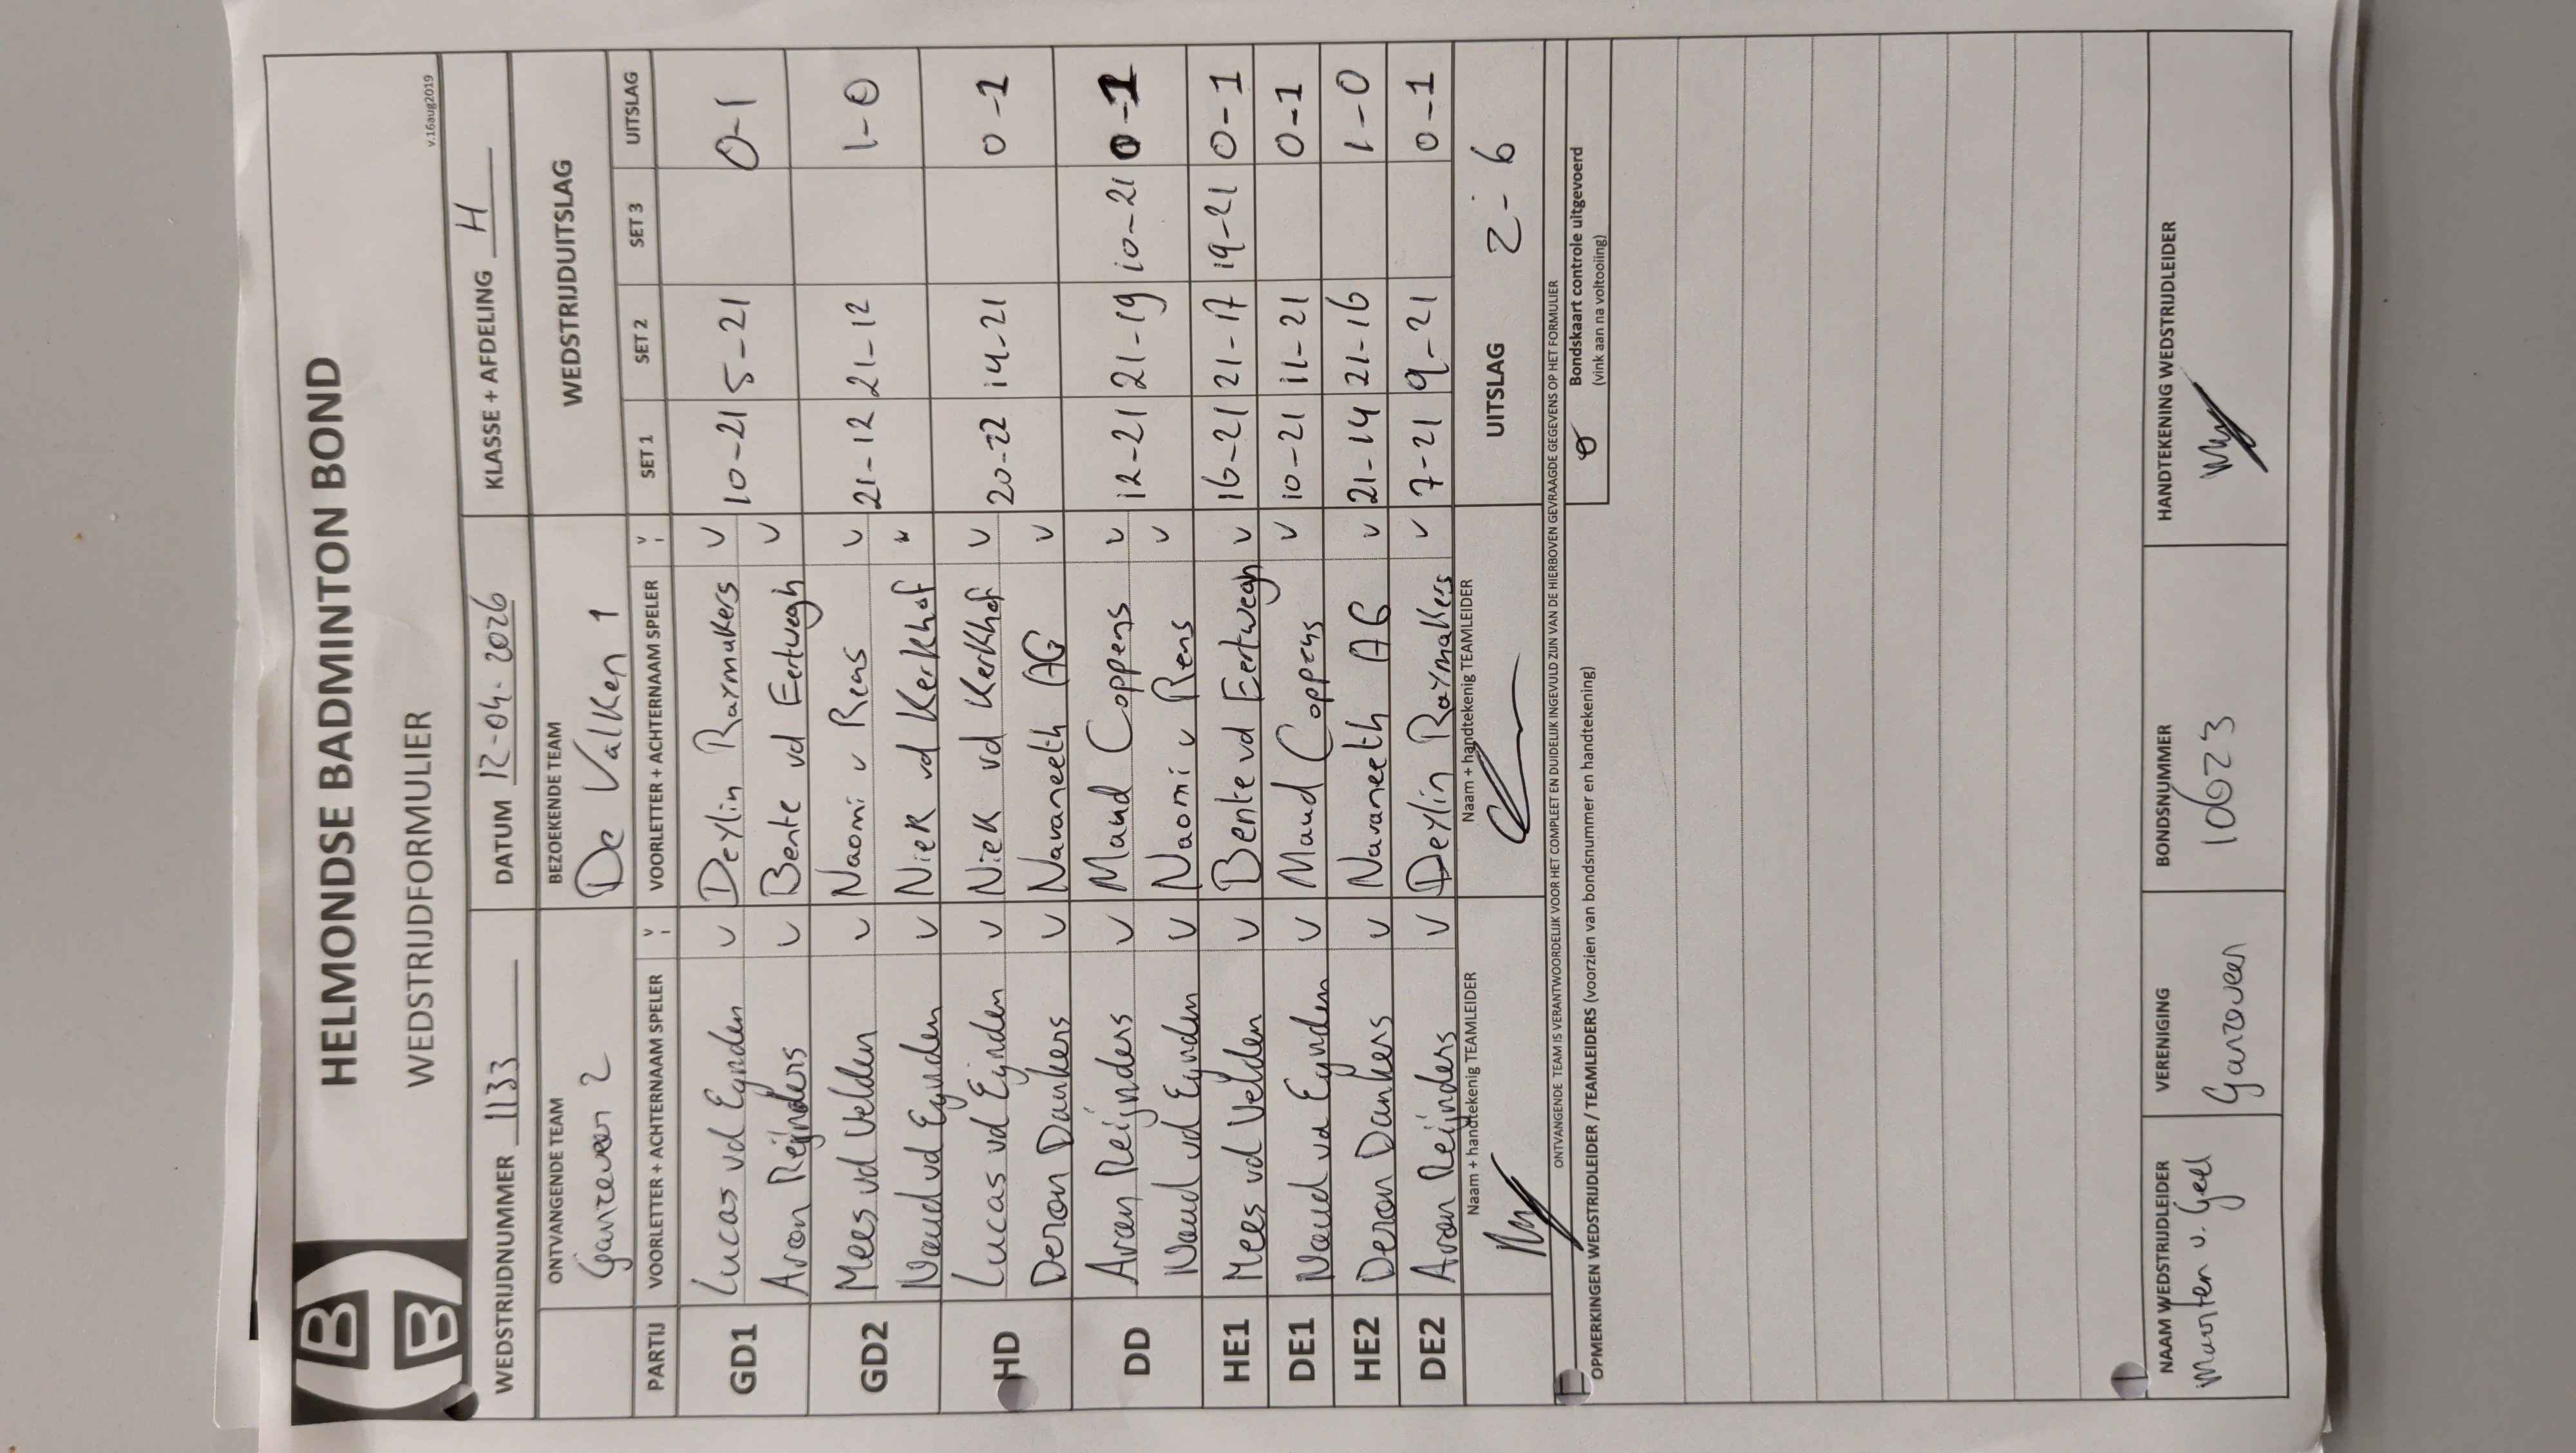 HELMONDSE BADMINTON BOND
WEDSTRIJDFORMULIER
v.16aug2019
WEDSTRIJDNUMMER 1133 DATUM 12-04-2026 KLASSE + AFDELING H
ONTVANGENDE TEAM BEZOEKENDE TEAM WEDSTRIJDUITSLAG
Ganzeveer 2 De Valken 1
PARTIJ VOORLETTER + ACHTERNAAM SPELER v VOORLETTER + ACHTERNAAM SPELER v SET 1 SET 2 SET 3 UITSLAG
GD1 Lucas vd Eynden v Deylin Raymakers v 10-21 5-21 0-1
Aron Reijnders v Bente vd Eertwegh v
GD2 Mees vd Velden v Naomi v Rens v 21-12 21-12 1-0
Naud vd Eynden v Niek vd Kerkhof v
HD Lucas vd Eynden v Niek vd Kerkhof v 20-22 14-21 0-1
Deron Dankers v Navaneeth AG v
DD Aron Reijnders v Maud Coppens v 12-21 21-19 10-21 0-1
Naud vd Eynden v Naomi v Rens v
HE1 Mees vd Velden v Bente vd Eertwegh v 16-21 21-17 19-21 0-1
DE1 Naud vd Eynden v Maud Coppens v 10-21 11-21 0-1
HE2 Deron Dankers v Navaneeth AG v 21-14 21-16 1-0
DE2 Aron Reijnders v Deylin Raymakers v 7-21 9-21 0-1
Naam + handtekenig TEAMLEIDER Naam + handtekenig TEAMLEIDER UITSLAG 2-6
ONTVANGENDE TEAM IS VERANTWOORDELIJK VOOR HET COMPLEET EN DUIDELIJK INGEVULD ZIJN VAN DE HIERBOVEN GEVRAAGDE GEGEVENS OP HET FORMULIER
OPMERKINGEN WEDSTRIJDLEIDER / TEAMLEIDERS (voorzien van bondsnummer en handtekening)
Bondskaart controle uitgevoerd
(vink aan na voltooiing)
NAAM WEDSTRIJDLEIDER VERENIGING BONDSNUMMER HANDTEKENING WEDSTRIJDLEIDER
Maarten v. Geel Ganzeveer 10623